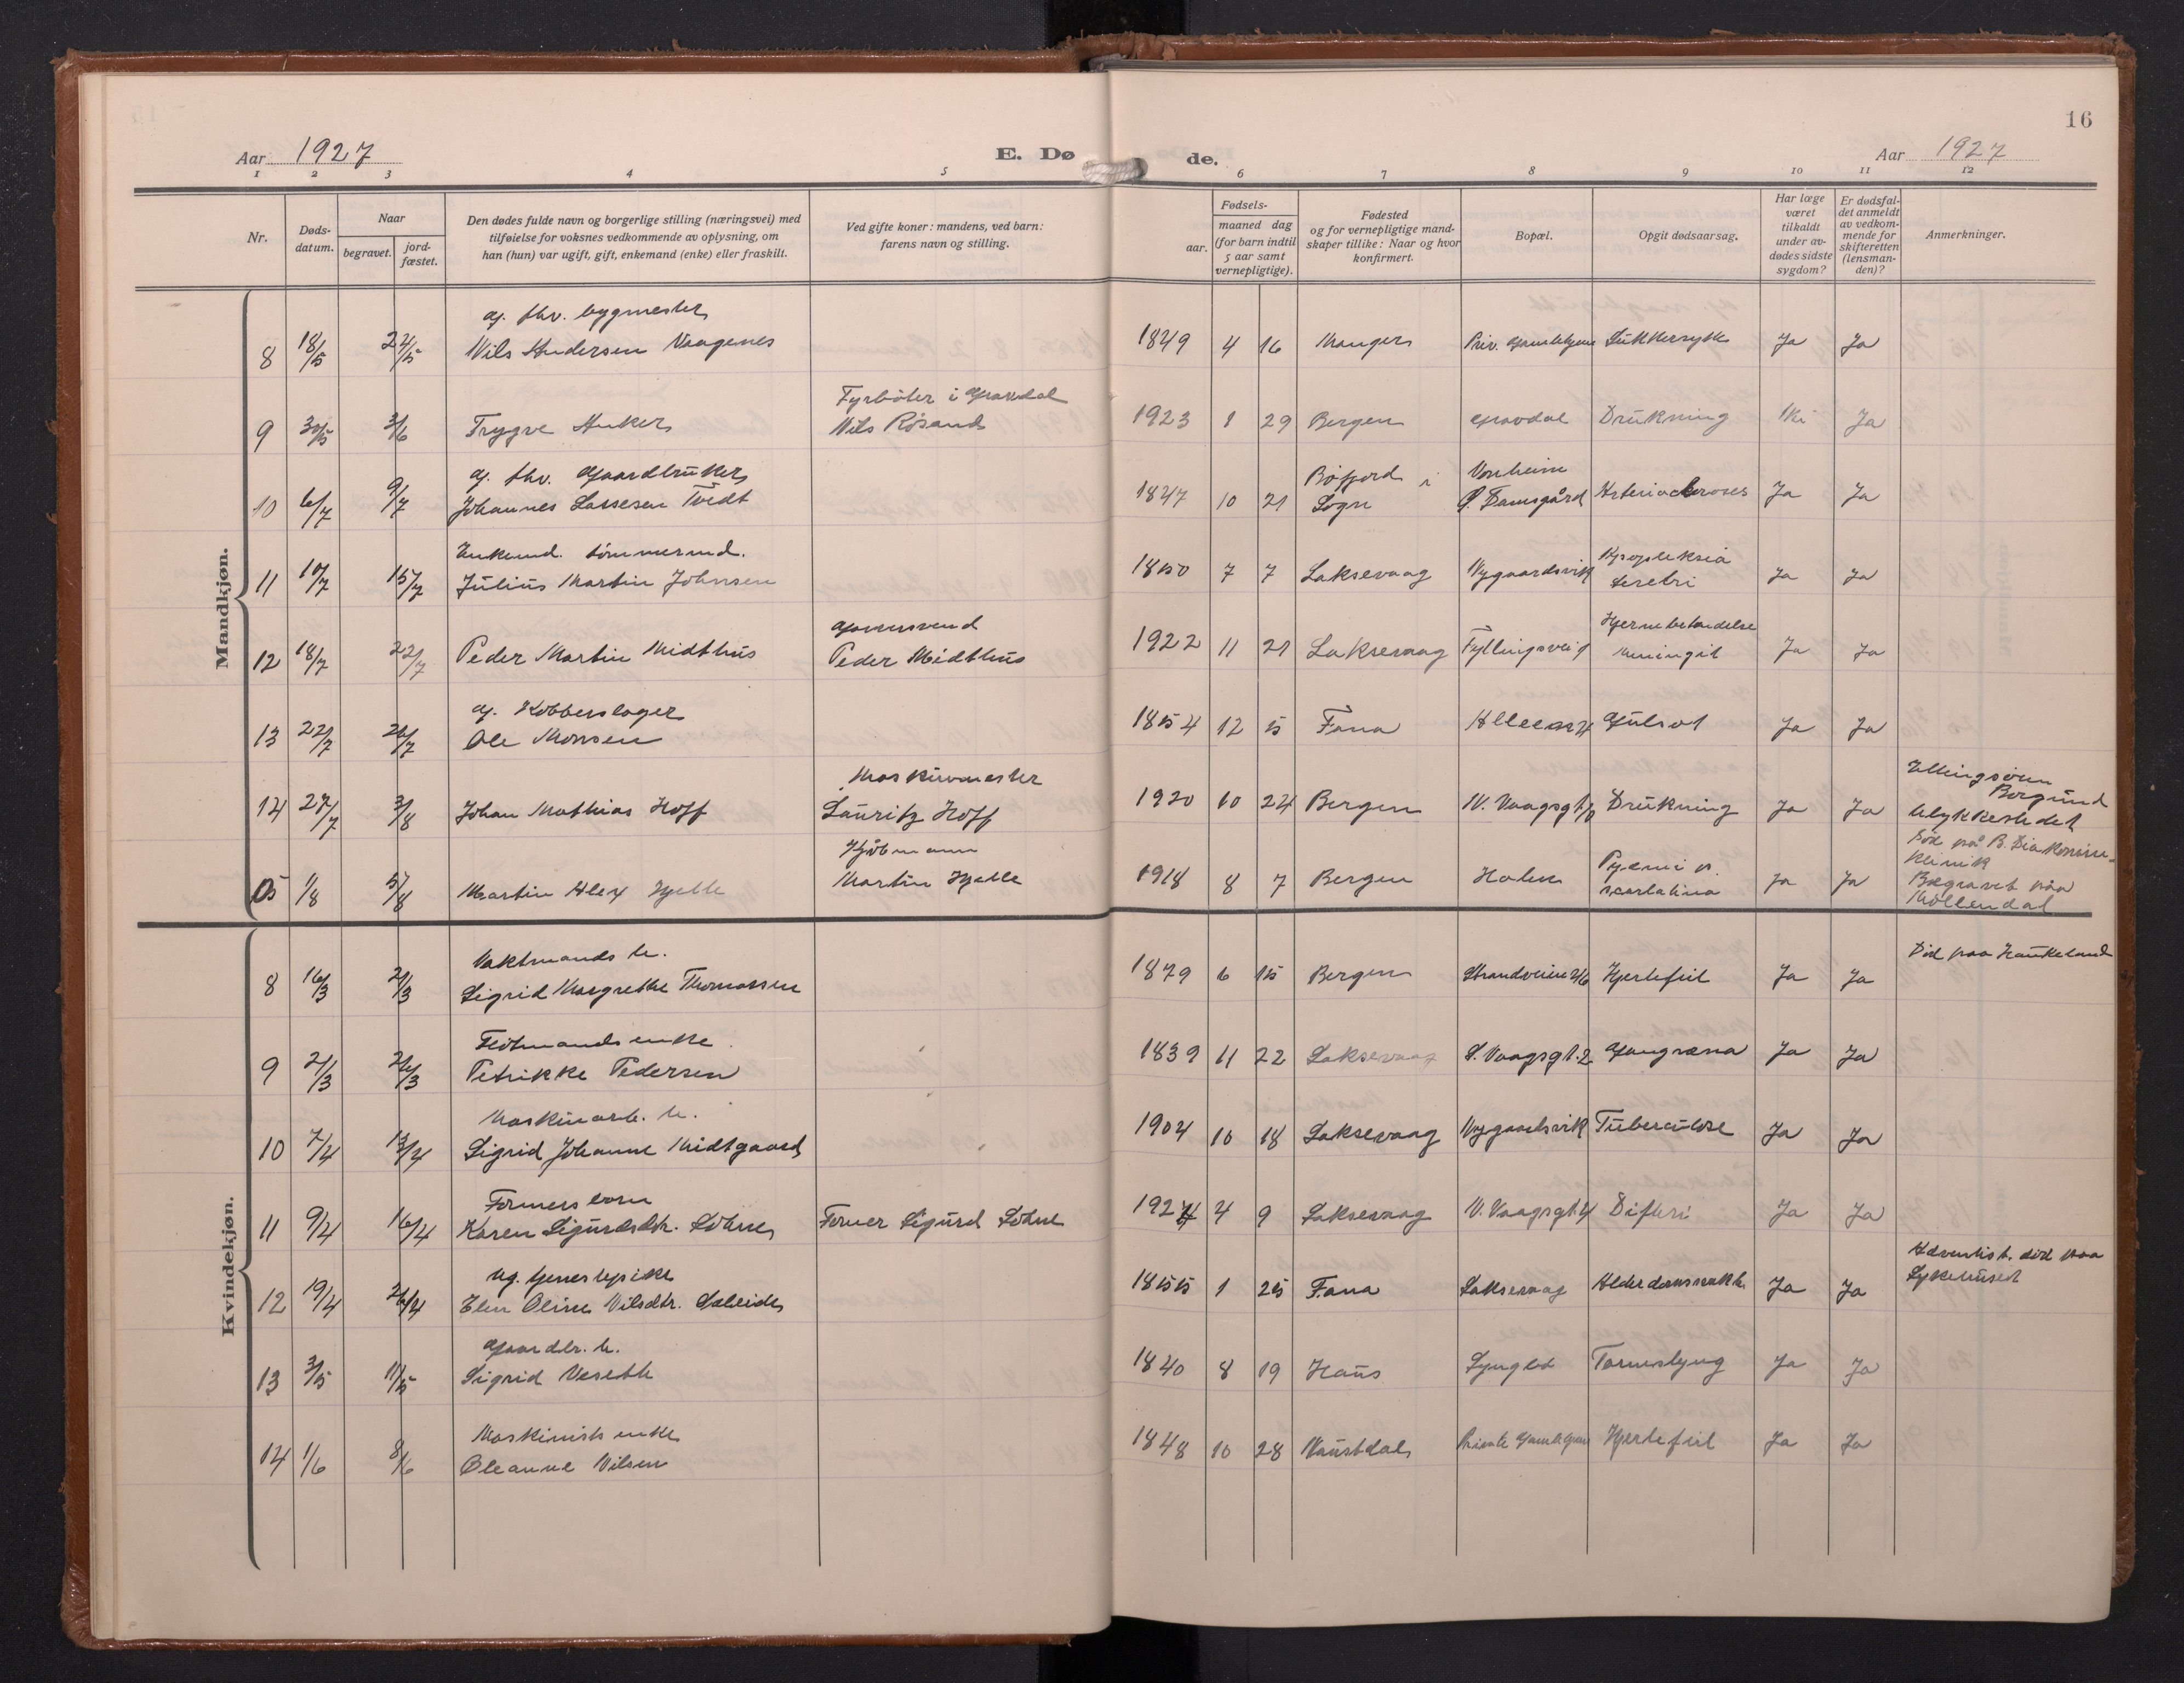 16
Aar 1927 E. Dø de. Aar 1927
1 2 3 4 5 6 7 8 9 10 11 12
Nr.
Døds-datum.
Naar
begravet. jord-fæstet.
Den dødes fulde navn og borgerlige stilling (næringsvei) med
tilføielse for voksnes vedkommende av oplysning, om
han (hun) var ugift, gift, enkemand (enke) eller fraskilt.
Ved gifte koner: mandens, ved barn:
farens navn og stilling.
aar.
Fødsels-
maaned dag
(for barn indtil
5 aar samt
vernepligtige).
Fødested
og for vernepligtige mand-
skaper tillike: Naar og hvor
konfirmert.
Bopæl.
Opgit dødsaarsag.
Har læge
været
tilkaldt
under av-
dødes sidste
sygdom?
Er dødsfal-
det anmeldt
av vedkom-
mende for
skifteretten
(lensman-
den)?
Anmerkninger.
Mandkjøn.
g. fhv. bygmester
8 18/5 24/5 Nils Andersen Vaagenes 1849 4 16 Manger Priv. Gamlehjem Sukkersyke Ja Ja
Fyrbøter i Gravdal
9 30/5 3/6 Trygve Anker Nils Røsand 1923 1 29 Bergen Gravdal Drukning Ikke Ja
g. fhv. Gaardbruker
10 6/7 9/7 Johannes Lassesen Tvedt 1847 10 21 Bøfjord i Sogn Vonheim Ø. Damsgård Arteriosclerose Ja Ja
Enkemd. tømmermd.
11 10/7 15/7 Julius Martin Johnsen 1850 7 7 Laksevaag Nygaardsvik Apopleksia cerebri Ja Ja
12 18/7 22/7 Peder Martin Midthus Peder Midthus 1922 11 21 Laksevaag Fyllingsvei Ja Ja
g. Kobberslager
13 22/7 26/7 Ole Monsen 1854 12 5 Fana Gulsot Ja Ja
Maskinmester
14 27/7 3/8 Johan Mathias Hoff Lauritz Hoff 1920 10 24 Bergen N. Vaagsgt. Drukning Ja Ja Ellingsøen Borgund Ulykkestedet
Kjøbmann
15 1/8 5/8 Martin Alex Hjelle Martin Hjelle 1918 8 7 Bergen Holen Pyæmi p. scarlatina Ja Ja Død på B. Diakonisse-klinik Begravet paa Møllendal
Kvindekjøn.
Vaktmands h.
8 16/3 21/3 Sigrid Margrethe Thomassen 1879 6 15 Bergen Strandveien Hjertefeil Ja Ja Død paa Haukeland
Flotmands enke
9 21/3 26/3 Petrikke Pedersen 1839 11 22 Laksevaag S. Vaagsgt. 2 Gangræna Ja Ja
Maskinarb. h.
10 7/4 13/4 Sigrid Johanne Midtgaard 1904 10 18 Laksevaag Nygaardsvik Tuberculose Ja Ja
Formers barn
11 9/4 16/4 Karen Sigurdsdtr. Lohne Former Sigurd Lohne 1924 4 9 Laksevaag V. Vaagsgt. 4 Difteri Ja Ja
Ug. tjenestepike
12 19/4 26/4 Elen Oline Nilsdtr. Sæleide 1855 1 25 Fana Laksevaag Alderdomssvakh. Ja Ja Adventist. død paa Sykehuset
Gaardbr. h.
13 3/5 11/5 Sigrid Veseth 1840 8 19 Haus Lyngbø Tarmslyng Ja Ja
Maskinists enke
14 1/6 8/6 Oleanne Nilsen 1848 10 28 Naustdal Private Gamlehjem Hjertefeil Ja Ja